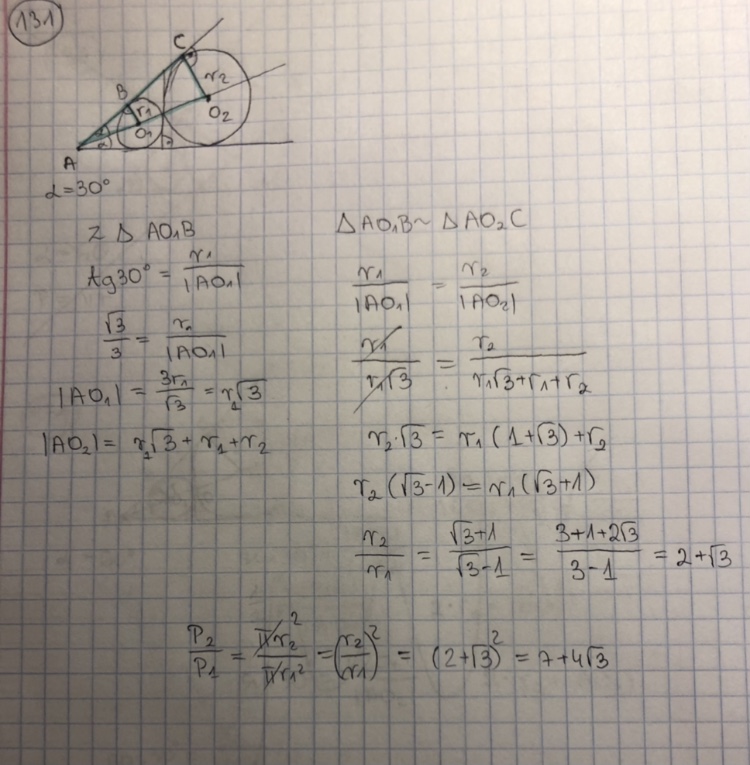 131
C
B
r₂
r₁
O₂
O₁
A
α
α = 30°
Z Δ AO₁B
tg30° = r₁/|AO₁|
√3/3 = r₁/|AO₁|
|AO₁| = 3r₁/√3 = r₁√3
|AO₂| = r₁√3 + r₁ + r₂
ΔAO₁B ~ ΔAO₂C
r₁/|AO₁| = r₂/|AO₂|
r₁/r₁√3 = r₂/r₁√3+r₁+r₂
r₂·√3 = r₁(1+√3)+r₂
r₂(√3-1) = r₁(√3+1)
r₂/r₁ = √3+1/√3-1 = 3+1+2√3/3-1 = 2+√3
P₂/P₁ = πr₂²/πr₁² = (r₂/r₁)² = (2+√3)² = 7+4√3